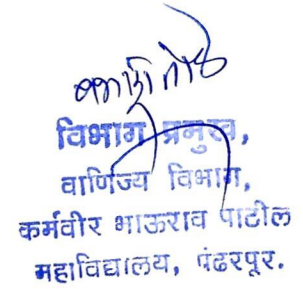 विभाग प्रमुख,
वाणिज्य विभाग,
कर्मवीर भाऊराव पाटील
महाविद्यालय, पंढरपूर.